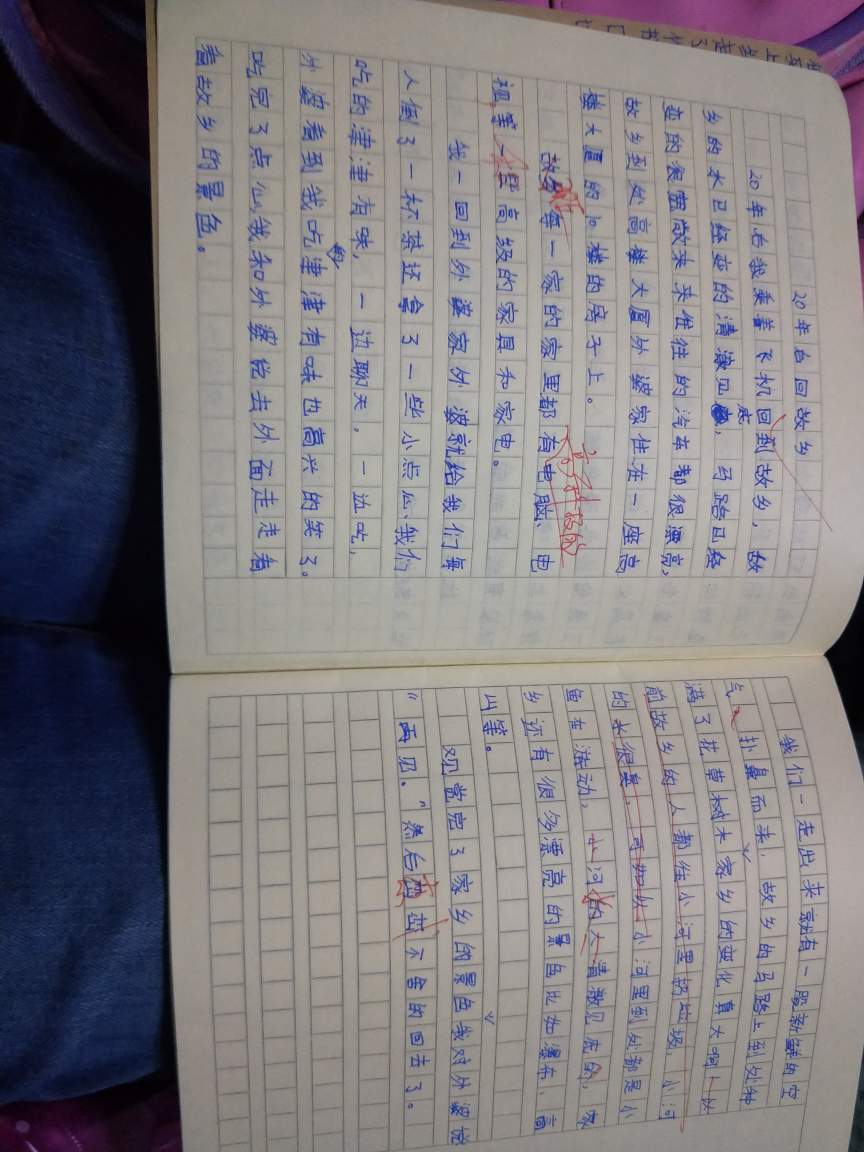 20年后回故乡
20年后我乘着飞机回到故乡，故
乡的水已经变的清澈见底，马路已经
变的很宽敞来来往往的汽车都很漂亮，
故乡到处高楼大厦外婆家住在一座高
楼大厦的10楼的房子上。
故乡每一家的家里都有电脑、电
视等一些高级的家具和家电。
我一回到外婆家外婆就给我们每
人倒了一杯茶还拿了一些小点心我们
吃的津津有味，一边聊天，一边吃，
外婆看到我吃的津津有味也高兴的笑了。
吃完了点心我和外婆说去外面走走看
看故乡的景色。
我们一走出来就有一股新鲜的空
气扑鼻而来，故乡的马路上到处种
满了花草树木家乡的变化真大啊！从
前故乡的人都往小河里扔垃圾，小河
的水很臭，可如今小河里到处都是小
鱼在游动，小河的水清澈见底的，家
乡还有很多漂亮的景色比如瀑布、高
山等。
观赏完了家乡的景色我对外婆说
“再见。”然后
不舍的回去了。